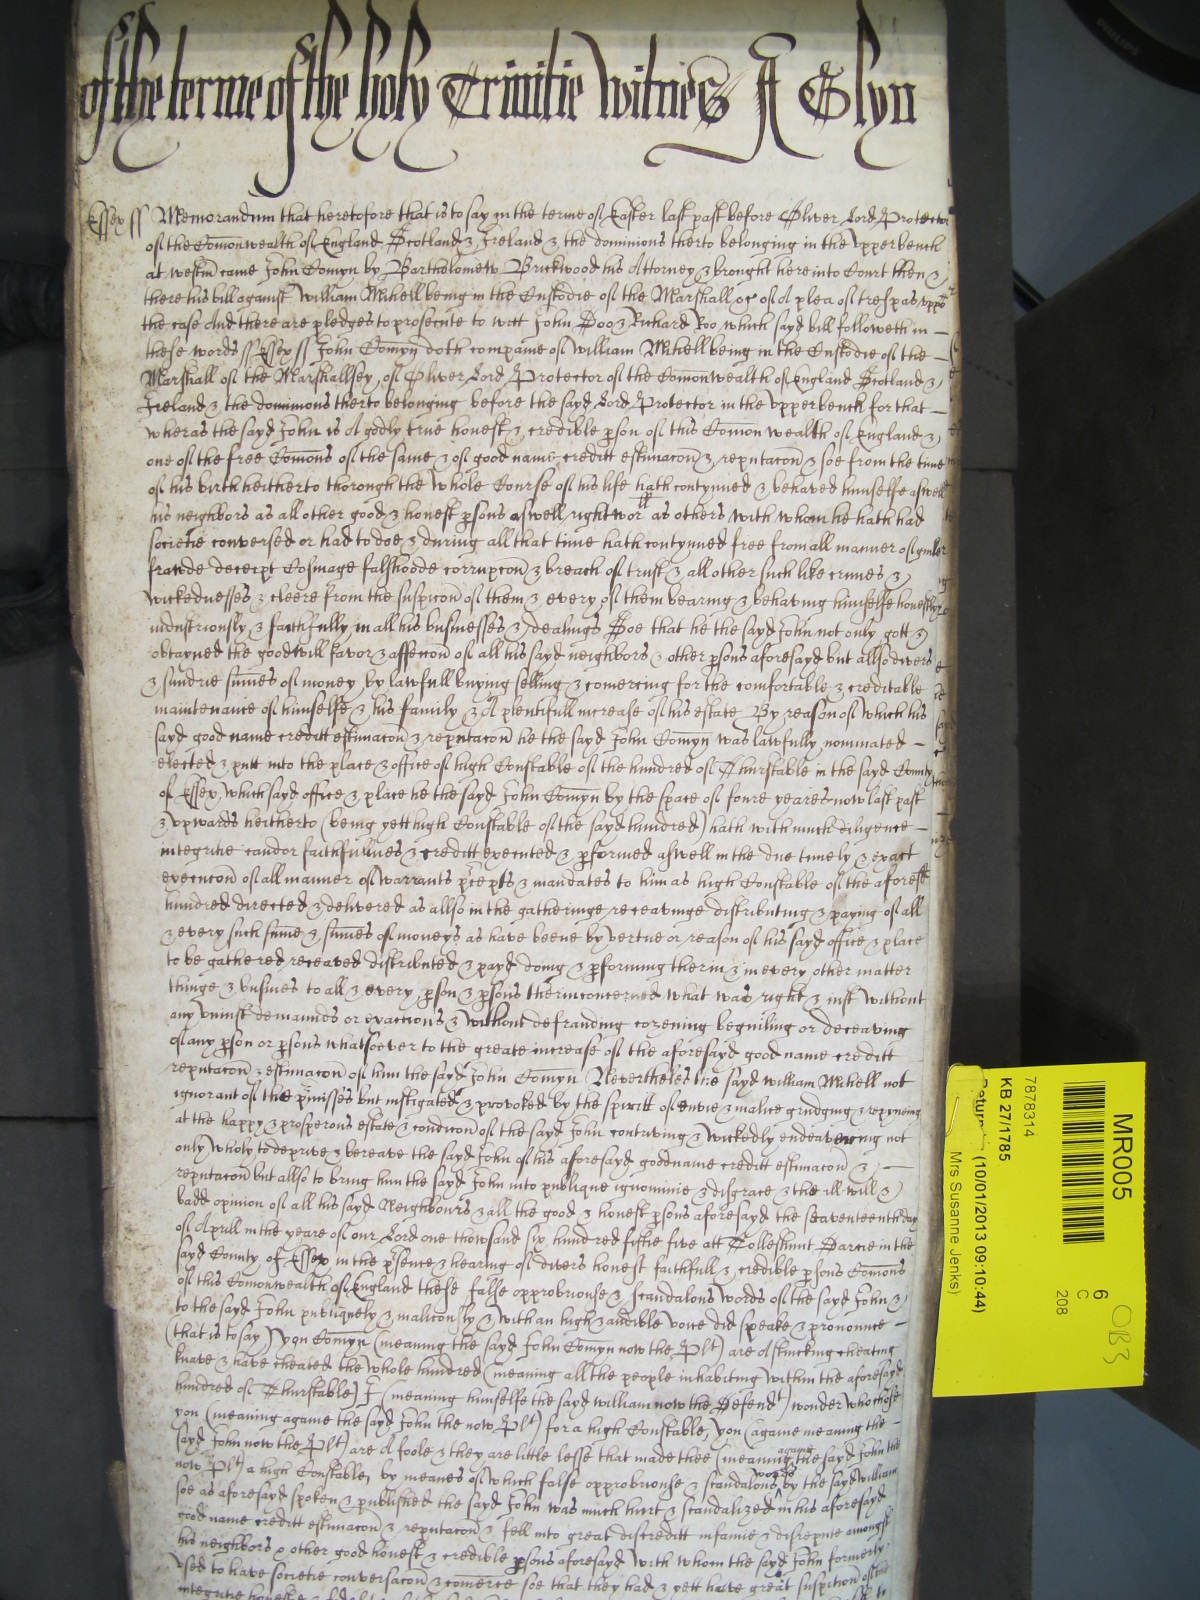 of the terme of the holy Trinitie Witnes J Glyn
Essex ss Memorandum that heretofore that is to say in the terme of Easter last past before Oliver Lord Protector
of the Comonwealth of England Scotland & Ireland & the dominions therto belonging in the upperbench
at Westm came John Comyn by Bartholomew Brickwood his Attorney & brought here into Court then &
there his bill against William Mihell being in the Custodie of the Marshall &c of A plea of trespas uppon
the case And there are pledges to prosecute to witt John Doo & Richard Roo which sayd bill followeth in
these words ss Essex ss John Comyn doth complaine of William Mihell being in the Custodie of the
Marshall of the Marshallsey of Oliver Lord Protector of the Comonwealth of England Scotland &
Ireland & the dominions therto belonging before the sayd Lord Protector in the upperbench for that
wheras the sayd John is A godly true honest & credible pson of this Comon wealth of England &
one of the free Comons of the same & of good name creditt estimacon & reputacon & soe from the time
of his birth heitherto thorough the whole Course of his life hath contynued & behaved himselfe aswell
his neighbors as all other good & honest psons aswell right wor as others with whom he hath had
societie conversed or had to doe & during all that time hath contynued free from all manner of
fraude deceipt Cosinage falshoode corrupcon & breach of trust & all other such like crimes &
wickednesses & cleere from the suspicon of them & every of them bearing & behaving himselfe honestly
industriously & faithfully in all his businesses & dealings Soe that he the sayd John not only gott &
obtayned the goodwill favor & affeccon of all his sayd neighbors & other psons aforesayd but allso divers
& sundrie sumes of money by lawfull buying selling & comercing for the comfortable & creditable
maintenance of himselfe & his family & A plentifull increase of his estate By reason of which his
sayd good name creditt estimacon & reputacon he the sayd John Comyn was lawfully nominated
elected & putt into the place & office of high Constable of the hundred of Thurstable in the sayd County
of Essex which sayd office & place he the sayd John Comyn by the space of foure yeares now last past
& upwards heitherto (being yett high Constable of the sayd hundred) hath with much diligence
integritie candor faithfullnes & creditt executed & pformed aswell in the due timely & exact
execucon of all manner of warrants pcepts & mandates to him as high Constable of the aforesd
hundred directed & delivered as allso in the gatheringe receavinge distributing & paying of all
& every such sume & sumes of moneys as have beene by vertue or reason of his sayd office & place
to be gathered receaved distributed & payd doing & pforming therin & in every other matter
thinge & busines to all & every pson & psons therin concerned what was right & iust without
any uniust demaunds or exactions & without defrauding cozening beguiling or deceaving
of any pson or psons whatsoever to the greate increase of the aforesayd good name creditt
reputacon & estimacon of him the sayd John Comyn Nevertheles the sayd William Mihell not
ignorant of the pmisses but instigated & provoked by the spiritt of envie & malice grudging & repyneing
at the happy & prosperous estate & condicon of the sayd John contriving & wickedly endeavouring not
only wholy to deprive & bereave the sayd John of his aforesayd good name creditt estimacon &
reputacon but allso to bring him the sayd John into publique ignominie & disgrace & the ill will &
badd opinion of all his sayd Neighbours & all the good & honest psons aforesayd the seaventeenth day
of Aprill in the yeare of our Lord one thowsand six hundred fiftie five att Tolleshunt Darcie in the
sayd County of Essex in the psence & hearing of divers honest faithfull & credible psons Comons
of this Comonwealth of England these false opprobriouse & scandalous words of the sayd John &
to the sayd John publiquely & maliciously & with an high & audible voice did speake & pronounce
(that is to say) You Comyn (meaning the sayd John Comyn now the Plt) are A stincking cheating
knave & have cheated the whole hundred (meaning all the people inhabiting within the aforesayd
hundred of Thurstable) I (meaning himselfe the sayd William now the Defendt) wonder who chose
you (meaning againe the sayd John the now Plt) for a high Constable, you (againe meaning the
sayd John now the Plt) are A foole & they are little lesse that made thee (meaning againe the sayd John the
now Plt) a high Constable, by meanes of which false opprobriouse & scandalous words by the sayd William
soe as aforesayd spoken & published the sayd John was much hurt & scandalized in his aforesayd
good name creditt estimacon & reputacon & fell into great discreditt infamie & disrepute amongst
his neighbors & other good honest & credible psons aforesayd with whom the sayd John formerly
used to have societie conversacon & comerce soe that they had & yett have great suspition of the
integritie
PHILIPS
MR005
6
C
208
7878314
KB 27/1785
(10/01/2013 09:10:44)
Mrs Susanne Jenks)
OB3